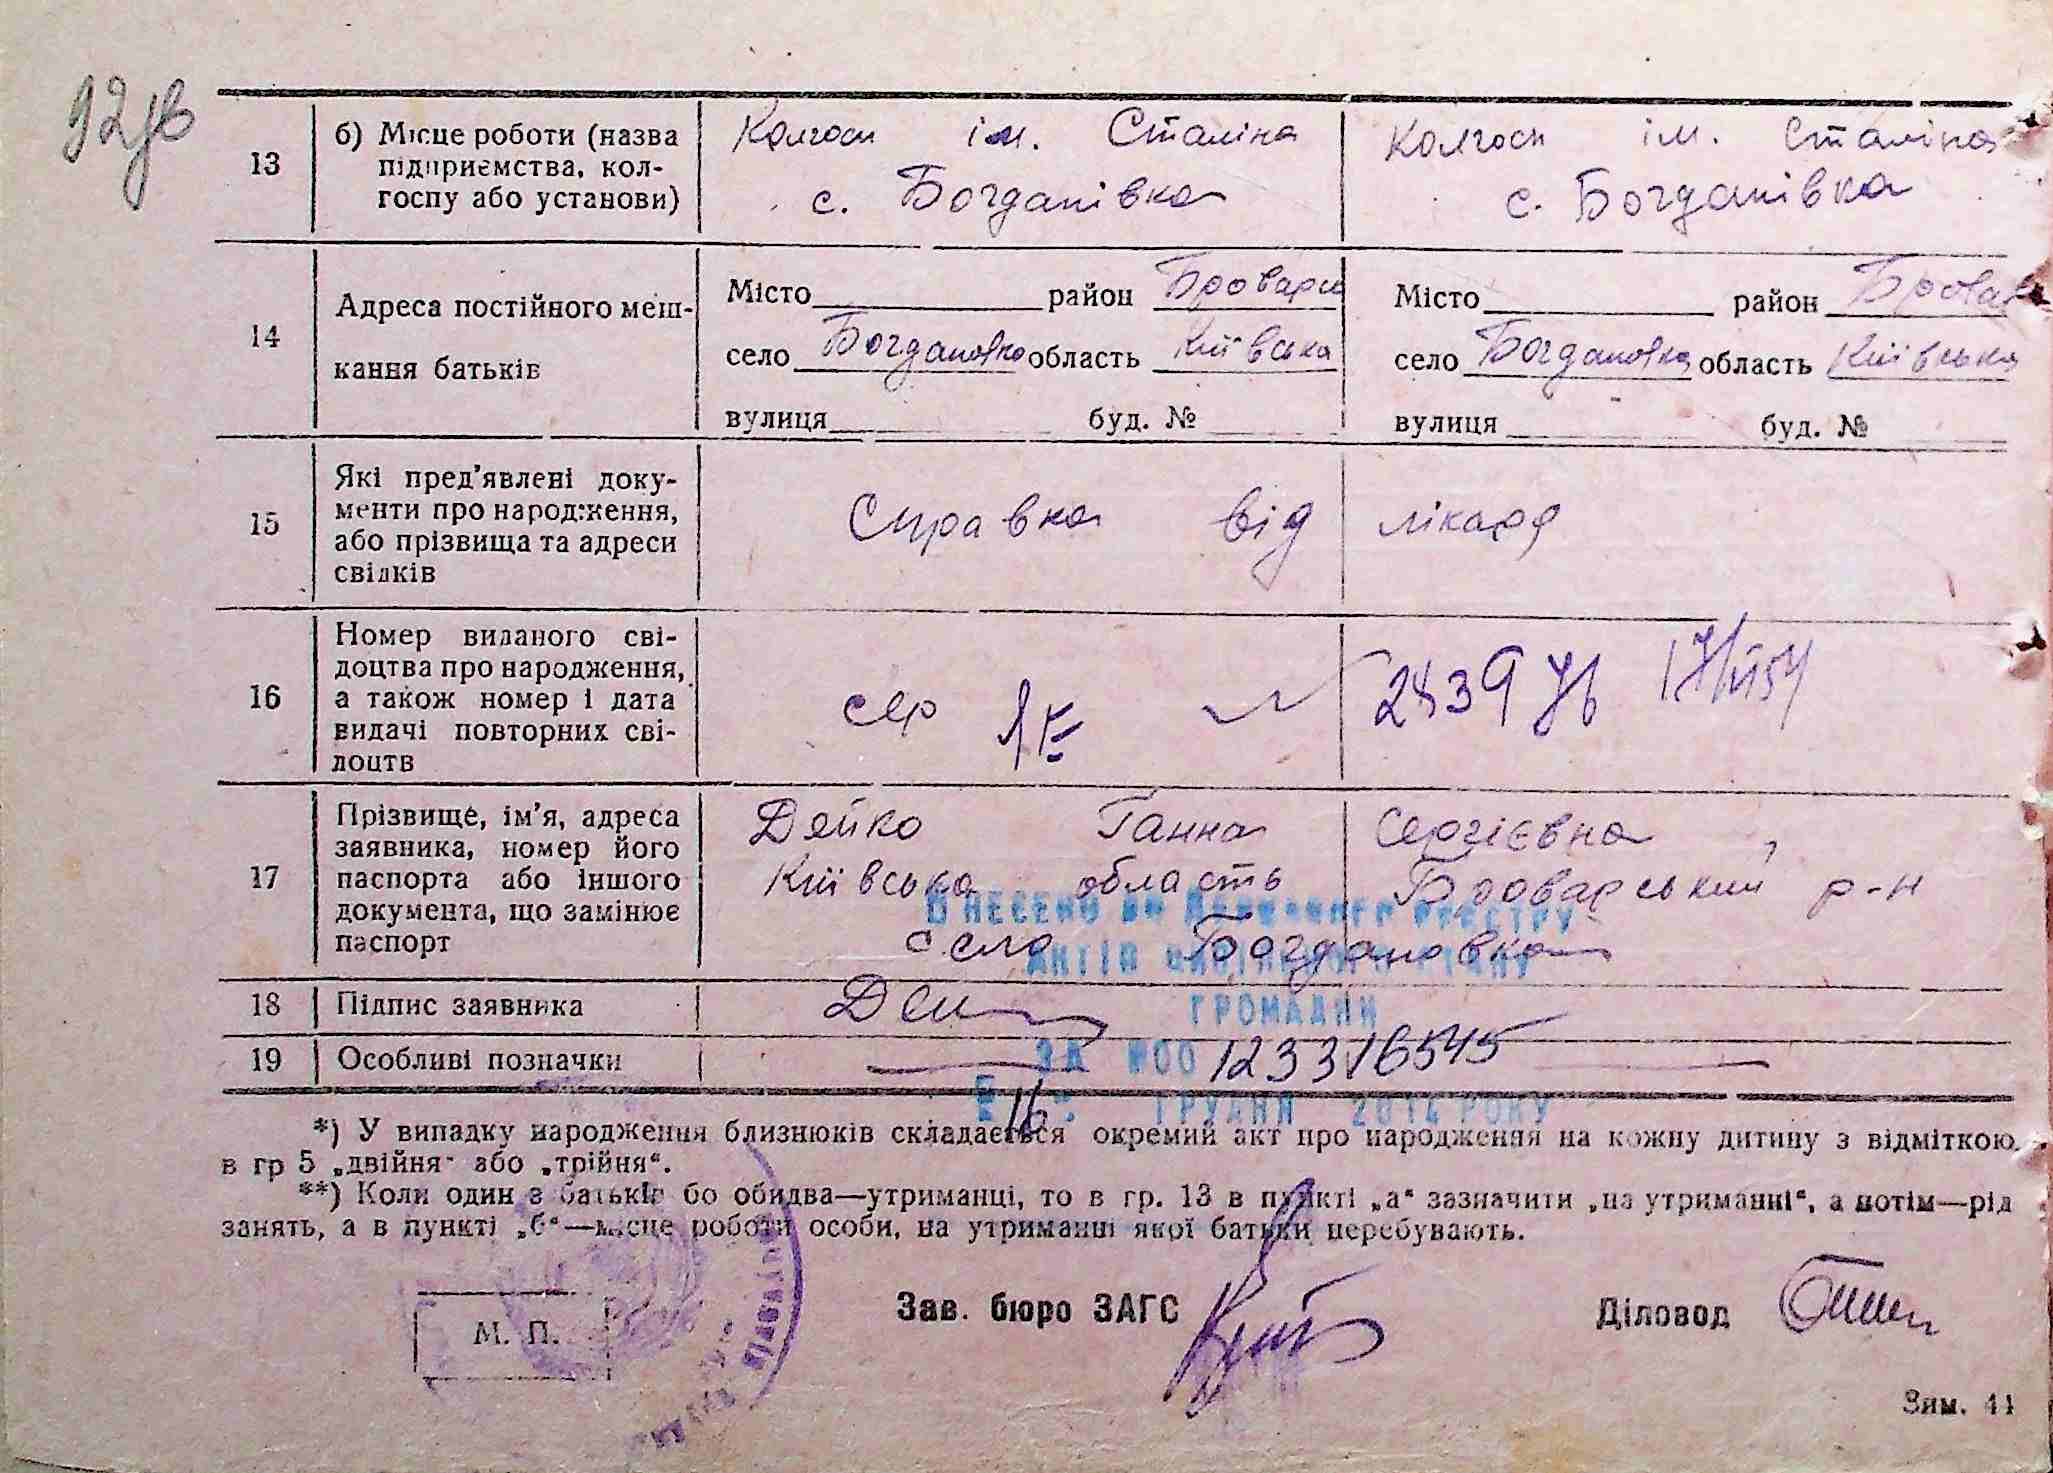 13
б) Місце роботи (назва
підприємства, кол-
госпу або установи)
Колгосп ім. Сталіна
с. Богданівка
Колгосп ім. Сталіна
с. Богданівка
14
Адреса постійного меш-
кання батьків
Місто район Бровари
село Богдановка область Київська
вулиця буд. №
Місто район Бровар
село Богдановка область Київська
вулиця буд. №
15
Які пред'явлені доку-
менти про народження,
або прізвища та адреси
свідків
Справка від лікаря
16
Номер виданого сві-
доцтва про народження,
а також номер і дата
видачі повторних сві-
доцтв
сер
17
Прізвище, ім'я, адреса
заявника, номер його
паспорта або іншого
документа, що замінює
паспорт
Дейко Ганна Сергієвна,
Київська область Броварський р-н
село Богдановка
ВНЕСЕНО до Державного реєстру
АКТІВ цивільного стану
ГРОМАДЯН
18 Підпис заявника
19 Особливі позначки
ЗА №00 123316545
16 ГРУДНЯ 2014 РОКУ
*) У випадку народження близнюків складається окремий акт про народження на кожну дитину з відміткою
в гр 5 „двійня" або „трійня“.
**) Коли один з батьків бо обидва—утриманці, то в гр. 13 в пункті „а“ зазначити „на утриманні“, а потім—рід
занять, а в пункті „б“—місце роботи особи, на утриманні якої батьки перебувають.
М. П.
Зав. бюро ЗАГС
Діловод
Зам. 44